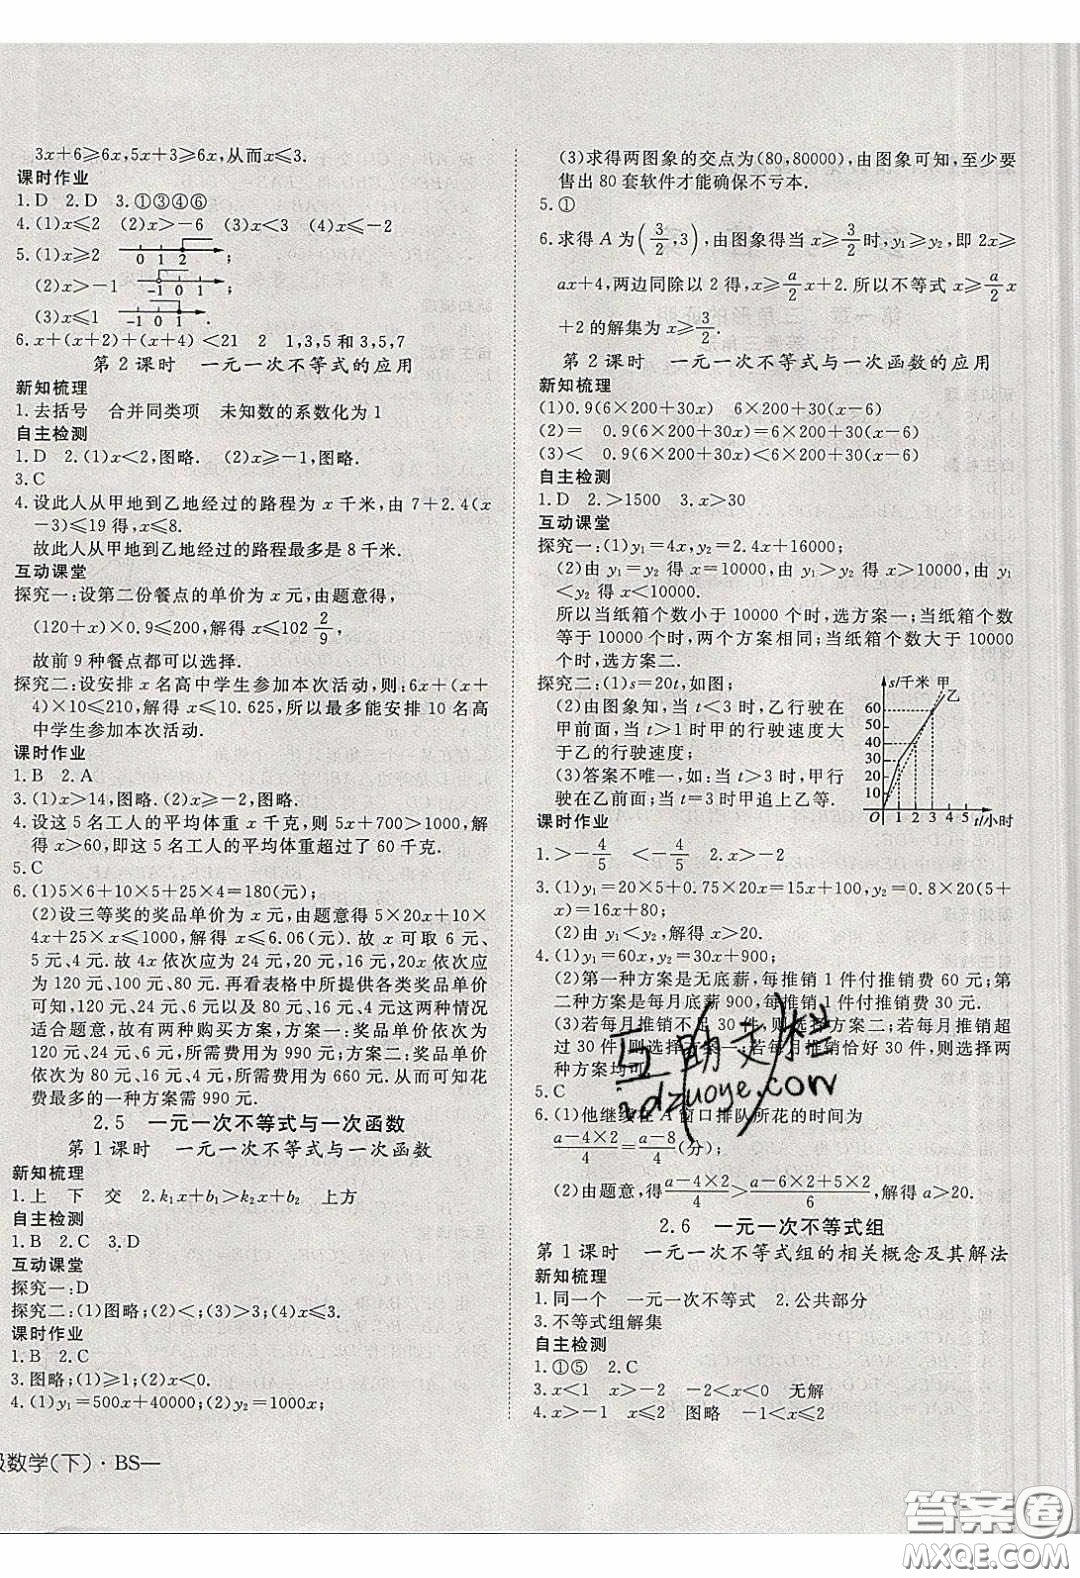 3x+6≥6x,5x+3≥6x,从而x≤3.
课时作业
1.D 2.D 3.①③④⑥
4.(1)x≤2 (2)x>-6 (3)x<3 (4)x≤-2
5.(1)x≥2 0 1 2 ;
(2)x>-1 -1 0 1 ;
(3)x≤1 -1 0 1 .
6.x+(x+2)+(x+4) <21 2 1,3,5和3,5,7
第2课时 一元一次不等式的应用
新知梳理
1.去括号 合并同类项 未知数的系数化为1
自主检测
1.D 2.(1)x<2,图略. (2)x>-6,图略.
3.C
4.设此人从甲地到乙地经过的路程为x千米,由7+2.4(x
-3)≤19得,x≤8.
故此人从甲地到乙地经过的路程最多是8千米.
互动课堂
探究一:设第二份餐点的单价为x元,由题意得,
(120+x)×0.9≤200,解得x≤102 2/9,
故前9种餐点都可以选择.
探究二:设安排x名高中学生参加本次活动,则:6x+(x+
4)×10≤210,解得x≤10.625,所以最多能安排10名高
中学生参加本次活动.
课时作业
1.B 2.A
3.(1)x>14,图略.(2)x≥-2,图略.
4.设这5名工人的平均体重x千克,则5x+700>1000,解
得x>60,即这5名工人的平均体重超过了60千克.
5.C
6.(1)5×6+10×5+25×4=180(元);
(2)设三等奖的奖品单价为x元,由题意得5×20x+10×
4x+25x≤1000,解得x≤6.06(元).故x可取6元、
5元、4元.故4x依次应为24元、20元、16元,20x依次应
为120元、100元、80元.再看表格中所提供各类奖品单价
可知,120元、24元、6元以及80元、16元、4元这两种情况
适合题意,故有两种购买方案,方案一:奖品单价依次为
120元、24元、6元,所需费用为990元;方案二:奖品单价
依次为80元、16元、4元,所需费用为660元.从而可知花
费最多的一种方案需990元.
2.5 一元一次不等式与一次函数
第1课时 一元一次不等式与一次函数
新知梳理
1.上 下 交 2.k₁x+b₁>k₂x+b₂ 上方
自主检测
1.B 2.C 3.D
互动课堂
探究一:D
探究二:(1)图略;(2)<;(3)>;(4)x≤3.
课时作业
1.B 2.C
3.图略;(1)≥1;(2)<0.
4.(1)y₁=500x+40000;(2)y₂=1000x;
级数学(下)·BS—
(3)求得两图象的交点为(80,80000),由图象可知,至少要
售出80套软件才能确保不亏本.
5.①
6.求得A为(3/2,3),由图象得当x≥3/2时,y₁≥y₂,即2x≥
ax+4,两边同除以2得,x≥a/2 x+2.所以不等式x≥a/2 x
+2的解集为x≥3/2.
第2课时 一元一次不等式与一次函数的应用
新知梳理
(1)0.9(6×200+30x) 6×200+30(x-6)
(2)= 0.9(6×200+30x)=6×200+30(x-6)
(3)< 0.9(6×200+30x)<6×200+30(x-6)
自主检测
1.D 2.>1500 3.x>30
互动课堂
探究一:(1)y₁=4x,y₂=2.4x+16000;
(2)由y₁=y₂得x=10000,由y₁>y₂得x>10000,由y₁
<y₂得x<10000.
所以当纸箱个数小于10000个时,选方案一;当纸箱个数
等于10000个时,两个方案相同;当纸箱个数大于10000
个时,选方案二.
探究二:(1)s=20t,如图;
(2)由图象知,当t<3时,乙行驶在
甲前面,当t>1时甲的行驶速度大
于乙的行驶速度;
(3)答案不唯一,如:当t>3时,甲行
驶在乙前面;当t=3时甲追上乙等.
s/千米 甲
乙
60
50
40
30
20
10
O 1 2 3 4 5 t/小时
课时作业
1.>-4/5 <-4/5 2.x>-2
3.(1)y₁=20×5+0.75×20x=15x+100,y₂=0.8×20(5+
x)=16x+80;
(2)由y₁<y₂,解得x>20.
4.(1)y₁=60x,y₂=30x+900;
(2)第一种方案是无底薪,每推销1件付推销费60元,第
二种方案是每月底薪900,每推销1件付推销费30元.
(3)若每月推销不足30件,则选择方案二;若每月推销超
过30件,则选择方案一;若每月推销恰好30件,则选择两种
方案均可.
5.C
6.(1)他继续在A窗口排队所花的时间为
(a-4×2)/4=(a-8)/4(分);
(2)由题意,得(a-4×2)/4>(a-6×2+5×2)/6,解得a>20.
2.6 一元一次不等式组
第1课时 一元一次不等式组的相关概念及其解法
新知梳理
1.同一个 一元一次不等式 2.公共部分
3.不等式组解集
自主检测
1.①⑤ 2.C
3.x<1 x>2 -2<x<0 无解
4.x>-1 x≤2 图略 -1<x≤2
互助文档
zdzuoye.com
答案圈
MXQE.COM